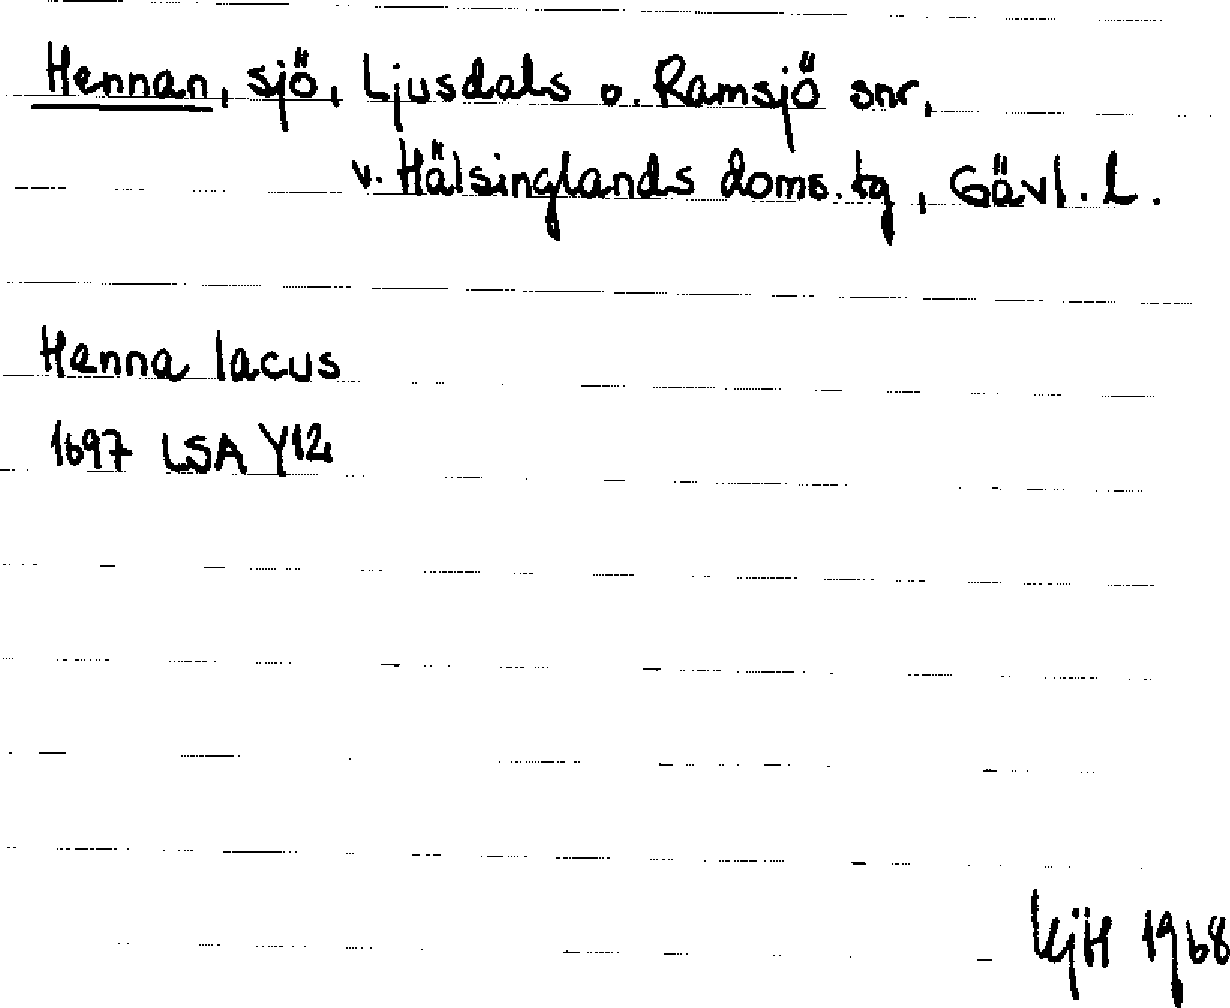 Hennan, sjö, Ljusdals o. Ramsjö snr,
v. Hälsinglands doms.tg, Gävl. L.
Henna lacus
1697 LSA Y12
KjH 1968